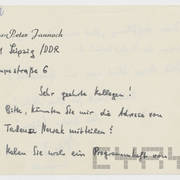 -Peter Jannoch
Leipzig /DDR
straße 6
Sehr geehrte Kollegen!
Bitte, könnten Sie mir die Adresse von
Tadeusz Nowak mitteilen!
Haben Sie wohl ein Programmheft von